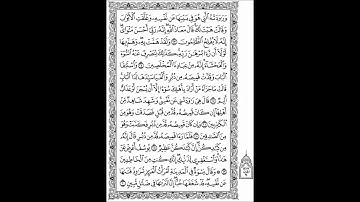 وَرَٰوَدَتْهُ ٱلَّتِى هُوَ فِى بَيْتِهَا عَن نَّفْسِهِۦ وَغَلَّقَتِ ٱلْأَبْوَٰبَ
وَقَالَتْ هَيْتَ لَكَ ۚ قَالَ مَعَاذَ ٱللَّهِ ۖ إِنَّهُۥ رَبِّىٓ أَحْسَنَ مَثْوَاىَ ۖ
إِنَّهُۥ لَا يُفْلِحُ ٱلظَّٰلِمُونَ ٢٣ وَلَقَدْ هَمَّتْ بِهِۦ ۖ وَهَمَّ بِهَا
لَوْلَآ أَن رَّءَا بُرْهَٰنَ رَبِّهِۦ ۚ كَذَٰلِكَ لِنَصْرِفَ عَنْهُ ٱلسُّوٓءَ
وَٱلْفَحْشَآءَ ۚ إِنَّهُۥ مِنْ عِبَادِنَا ٱلْمُخْلَصِينَ ٢٤ وَٱسْتَبَقَا
ٱلْبَابَ وَقَدَّتْ قَمِيصَهُۥ مِن دُبُرٍ وَأَلْفَيَا سَيِّدَهَا لَدَا ٱلْبَابِ ۚ
قَالَتْ مَا جَزَآءُ مَنْ أَرَادَ بِأَهْلِكَ سُوٓءًا إِلَّآ أَن يُسْجَنَ أَوْ عَذَابٌ
أَلِيمٌ ٢٥ قَالَ هِىَ رَٰوَدَتْنِى عَن نَّفْسِى ۚ وَشَهِدَ شَاهِدٌ مِّنْ
أَهْلِهَآ إِن كَانَ قَمِيصُهُۥ قُدَّ مِن قُبُلٍ فَصَدَقَتْ وَهُوَ مِنَ
ٱلْكَٰذِبِينَ ٢٦ وَإِن كَانَ قَمِيصُهُۥ قُدَّ مِن دُبُرٍ فَكَذَبَتْ وَهُوَ
مِنَ ٱلصَّٰدِقِينَ ٢٧ فَلَمَّا رَءَا قَمِيصَهُۥ قُدَّ مِن دُبُرٍ قَالَ إِنَّهُۥ
مِن كَيْدِكُنَّ ۖ إِنَّ كَيْدَكُنَّ عَظِيمٌ ٢٨ يُوسُفُ أَعْرِضْ عَنْ
هَٰذَا ۚ وَٱسْتَغْفِرِى لِذَنۢبِكِ ۖ إِنَّكِ كُنتِ مِنَ ٱلْخَاطِـِٔينَ
٢٩ وَقَالَ نِسْوَةٌ فِى ٱلْمَدِينَةِ ٱمْرَأَتُ ٱلْعَزِيزِ تُرَٰوِدُ فَتَىٰهَا
عَن نَّفْسِهِۦ ۖ قَدْ شَغَفَهَا حُبًّا ۖ إِنَّا لَنَرَىٰهَا فِى ضَلَٰلٍ مُّبِينٍ ٣٠